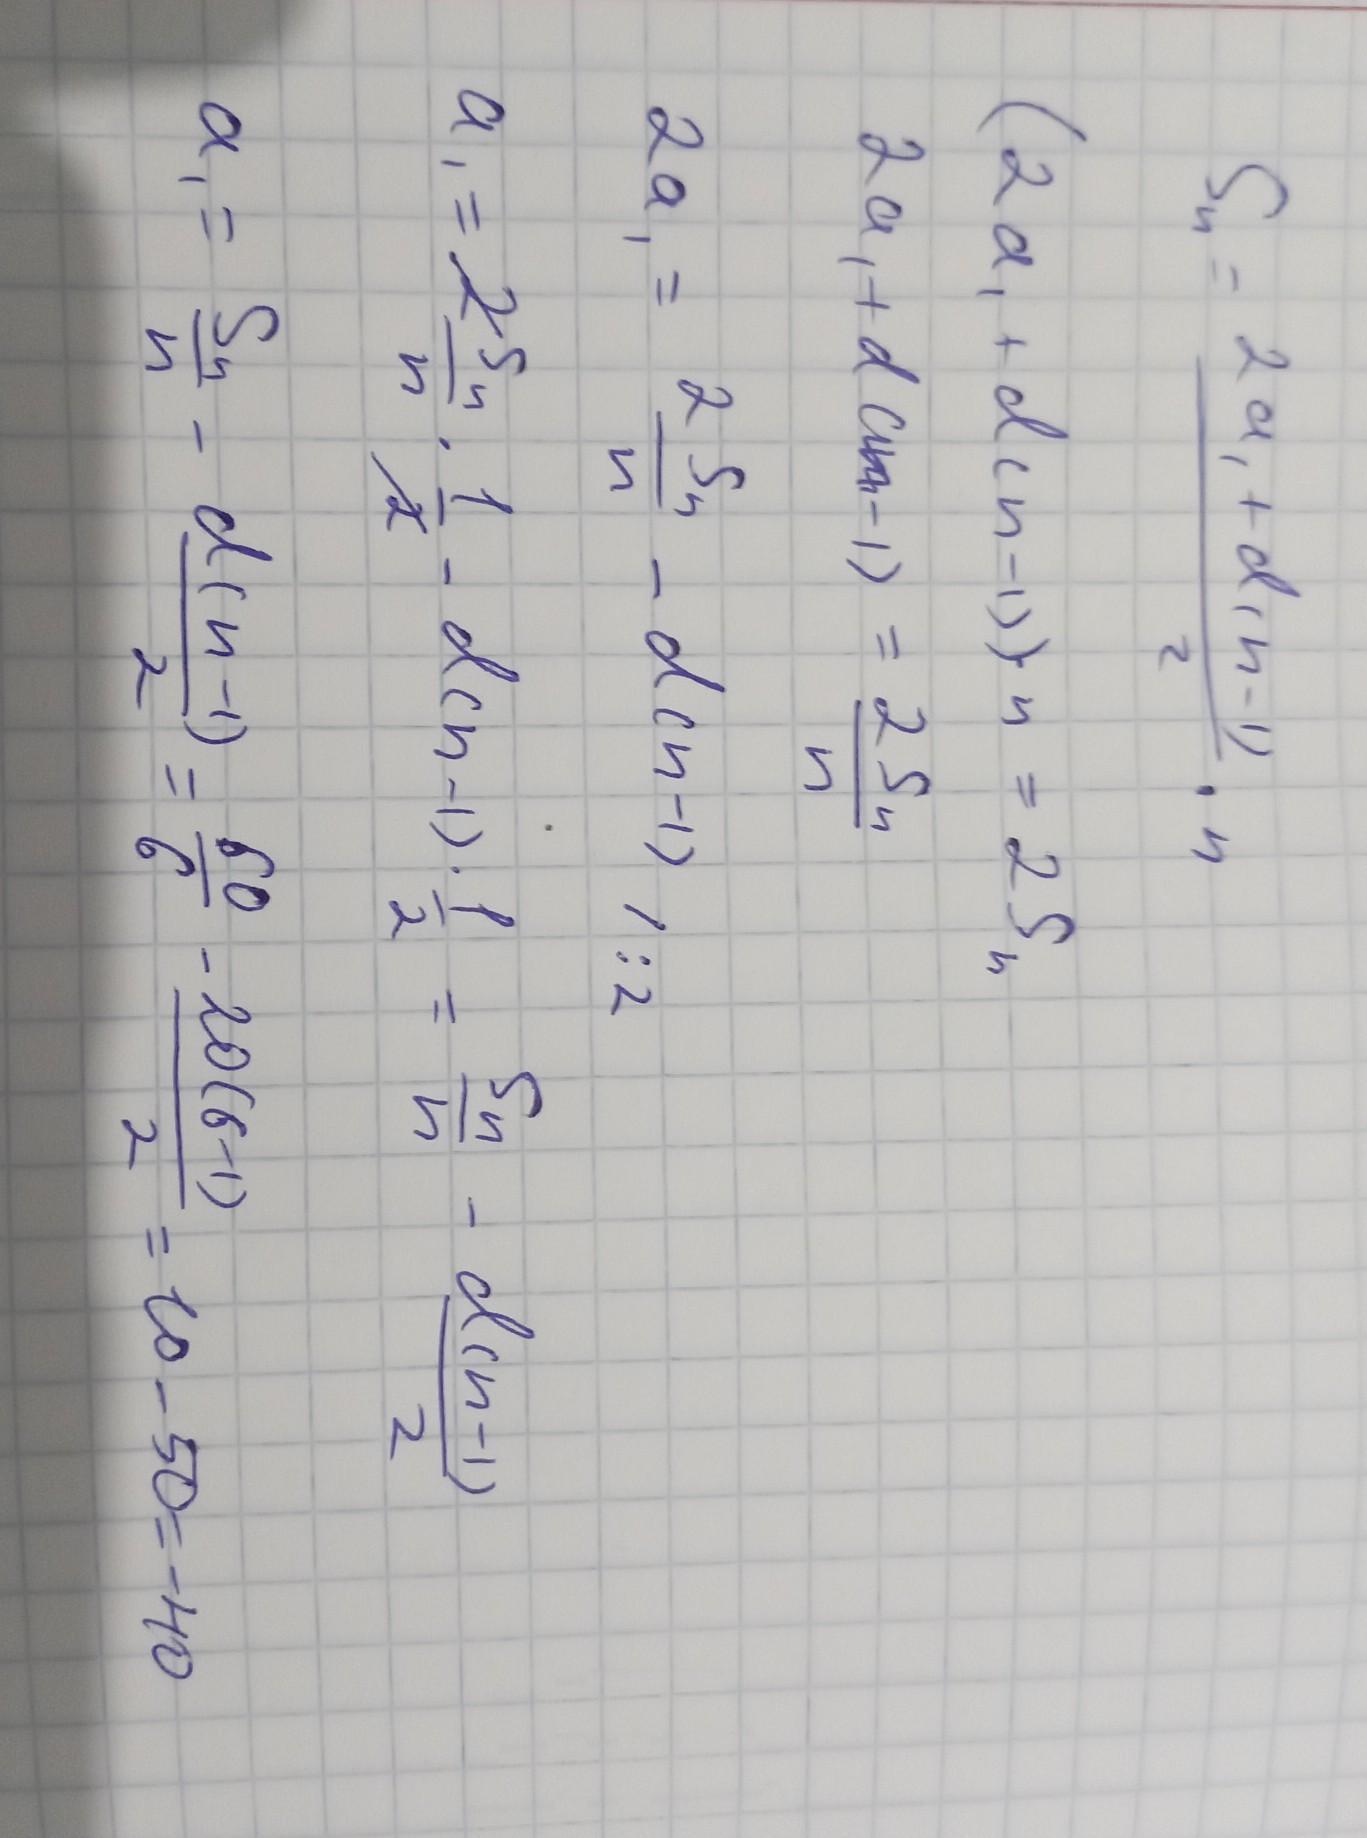 Sn = (2a₁ + d(n-1))/2 · n
(2a₁ + d(n-1)) · n = 2Sn
2a₁ + d(n-1) = 2Sn/n
2a₁ = 2Sn/n - d(n-1) / : 2
a₁ = 2Sn/n · 1/2 - d(n-1) · 1/2 = Sn/n - d(n-1)/2
a₁ = Sn/n - d(n-1)/2 = 60/6 - 20(6-1)/2 = 10 - 50 = -40